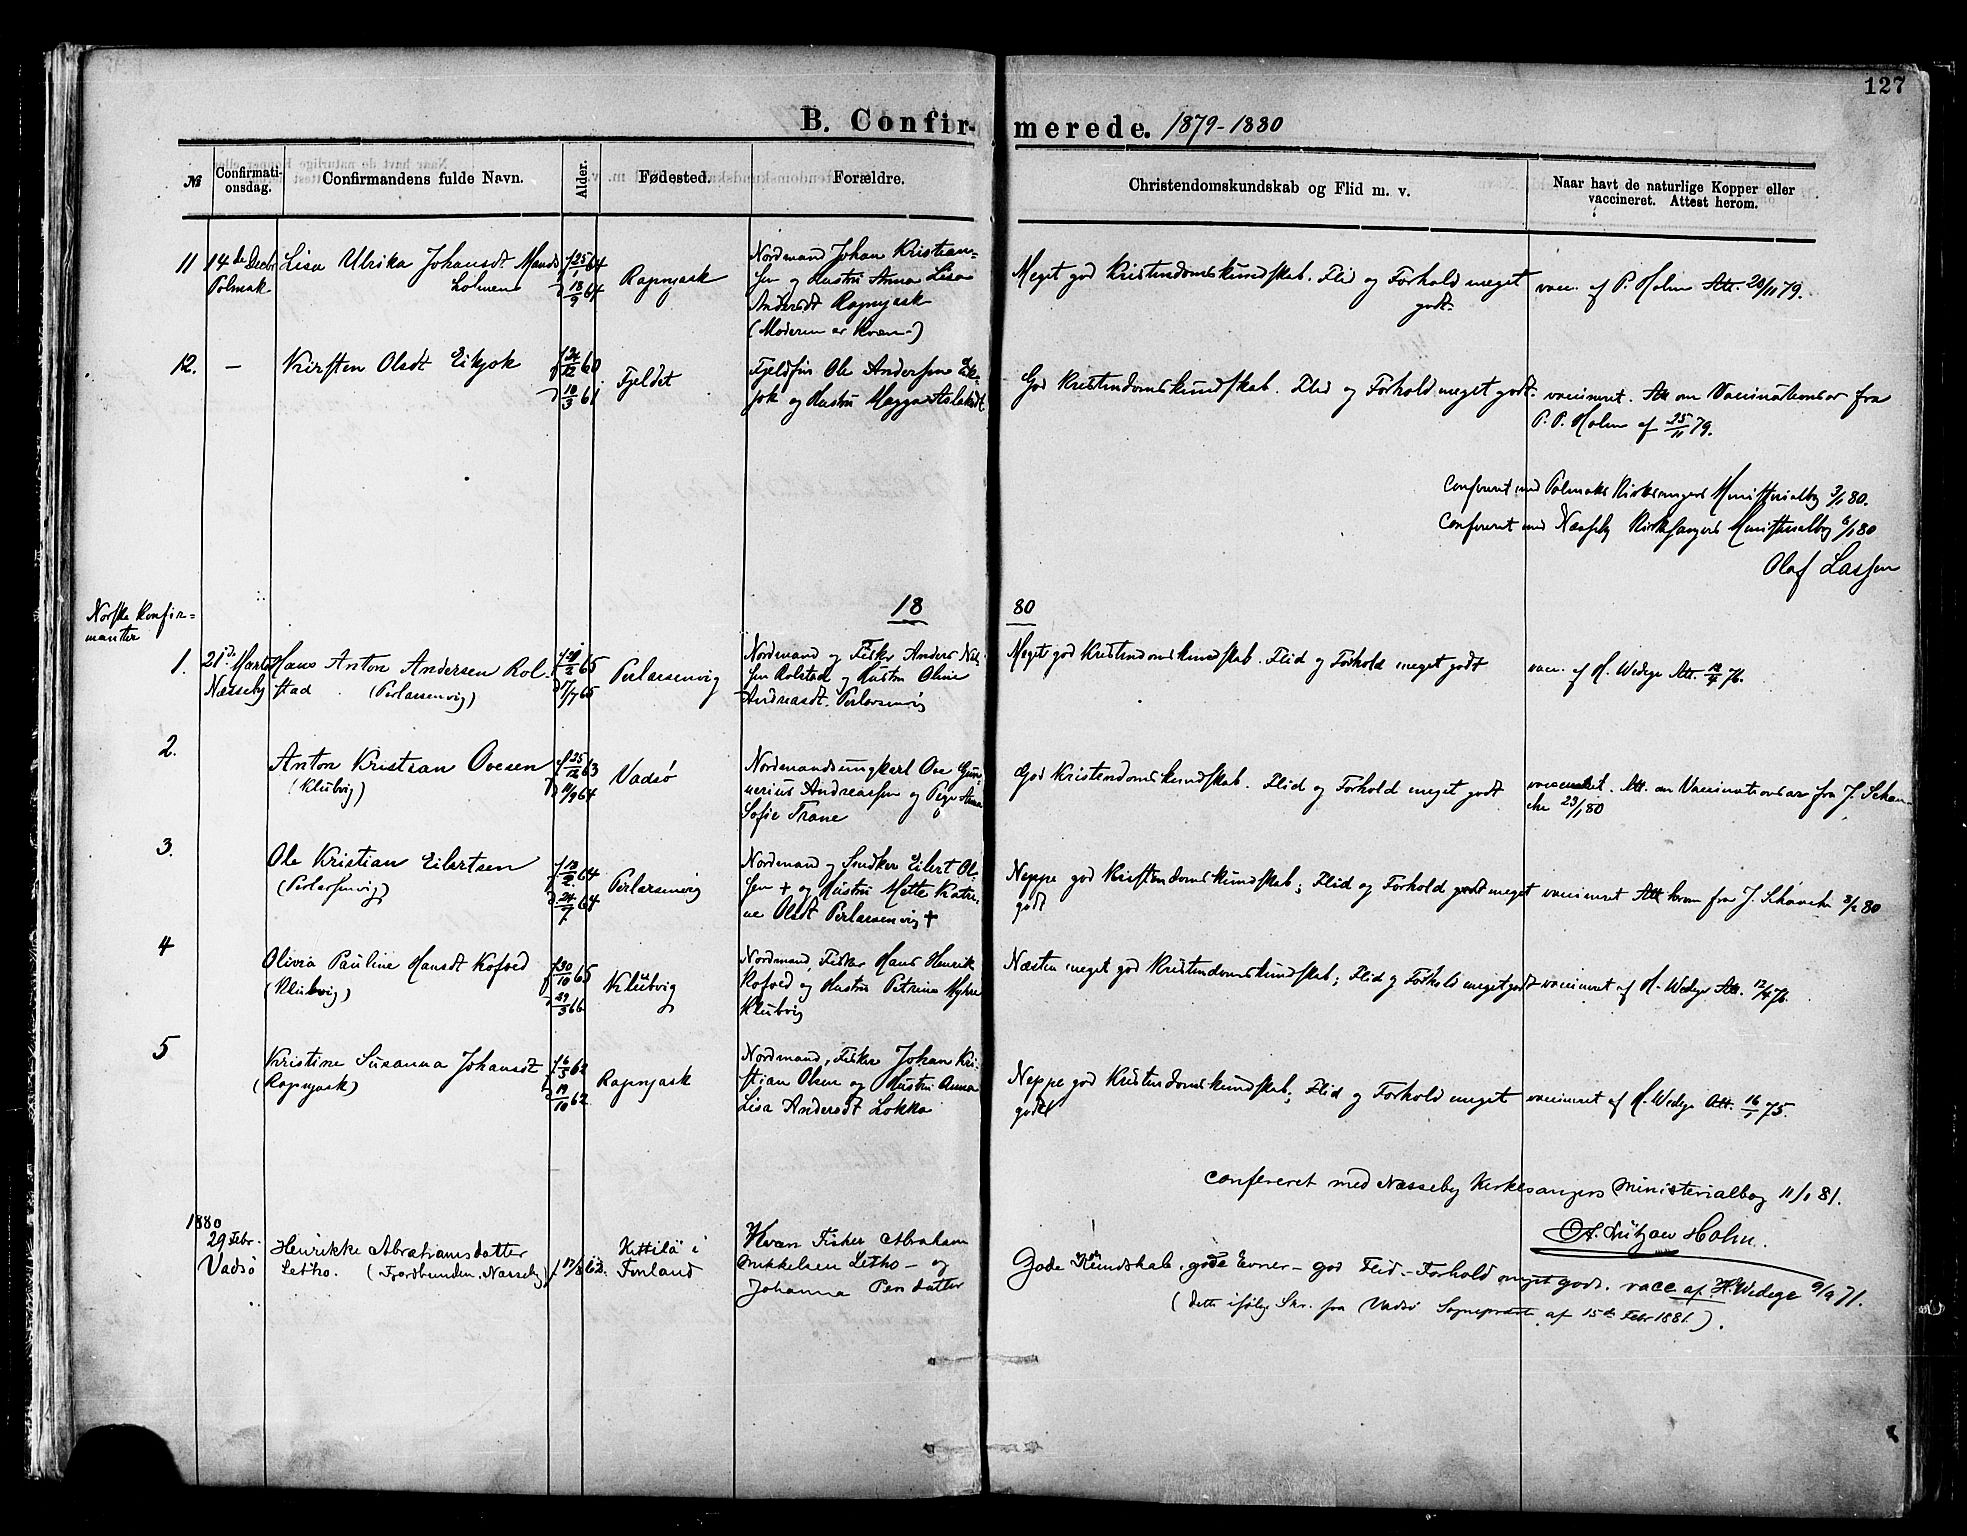 127
B. Confirmerede. 1879-1880
№ Confirmationsdag. Confirmandens fulde Navn. Alder. Fødested. Forældre. Christendomskundskab og Flid m. v. Naar havt de naturlige Kopper eller vaccineret. Attest herom.
11 14de Decbr Lisa Ulrika Johansdt Mands
Polmak holmen
f 25/1 64
d 18/3 64
Rapnjask
Nordmand Johan Kristian-
sen og Hustru Anna Lisa
Andersdt Rapnjask
(Moderen er Kvæn)
Meget god Kristendomskundskab. Flid og Forhold meget
godt.
vacc. af P. Holm Att. 20/11 79.
12. — Kirsten Olsdt Eikjok
f 24/12 60
d 10/3 61
Fjeldet
Fjeldfin Ole Andersen Eik-
jok og Hustru Magga Aslaksdt
God Kristendomskundskab. Flid og Forhold meget godt.
vaccineret. Att. om Vaccinationsar fra
P. P. Holm af 25/11 79.
Confereret med Polmaks Kirkesangers Ministerialbog 3/1 80.
Confereret med Næsseby Kirkesangers Ministerialbog 6/1 80
Olaf Lassen
18 80
Norske Konfir=
manter
1. 21de Marts Hans Anton Andersen Rol-
Næsseby stad (Perlarsenvig)
65
d 17/7 65
Perlarsenvig
Nordmand og Fisker Anders Nil-
sen Rolstad og Hustru Oline
Andreasdt. Perlarsenvig
Meget god Kristendomskundskab. Flid og Forhold meget godt
vacc. af H. Wedege Att. 12/4 76.
2.
Anton Kristian Ovesen
(Klubvig)
f 25/12 63
d 11/9 64
Vadsø
Nordmandsungkarl Ove Gun-
nerius Andreassen og Pige Anna
Sofie Trane
God Kristendomskundskab. Flid og Forhold meget godt
vaccineret. Att. om Vaccinationsar fra J. Schan-
che 23/1 80
3.
Ole Kristian Eilertsen
(Perlarsenvig)
f 12/2 64
d 24/7 64
Perlarsenvig
Nordmand og Snedker Eilert Ol-
sen + og Hustru Mette Katri-
ne Olsdt Perlarsenvig +
Neppe god Kristendomskundskab; Flid og Forhold meget
godt
vaccineret Att. herom fra J. Schanche 3/2 80
4
Olivia Pauline Hansdt Kofoed
(Klubvig)
f 30/10 65
d 29/3 66
Klubvig
Nordmand, Fisker Hans Henrik
Kofoed og Hustru Petrine Myhre
Klubvig
Næsten meget god Kristendomskundskab; Flid og Forhold meget godt
vaccineret af H. Wedege Att. 12/4 76.
5
Kristine Susanna Johansdt
(Rapnjask)
f 16/3 62
d 19/10 62
Rapnjask
Nordmand, Fisker Johan Kri-
stian Olsen og Hustru Anna
Lisa Andersdt Lokka
Neppe god Kristendomskundskab; Flid og Forhold meget
godt
vaccineret af H. Wedege Att. 16/1 75.
Confereret med Næsseby Kirkesangers Ministerialbog 11/1 81.
Lützow Holm.
1880
29 Febr.
Vadsø
Henrikke Abrahamsdatter
Letho. (Fjordbunden, Næsseby)
f. 17/8 63
Kittilä i
Finland
Kvæn Fisker Abraham
Mikkelsen Letho - og
Johanna Persdatter
Gode Kundskab. gode Evner - god Flid. - Forhold meget godt. vacc. af H. Wedege 9/9 71.
(dette ifølge Skr. fra Vadsø Sognepræst af 15de Febr 1881.).